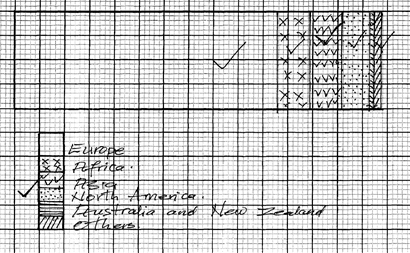 Europe
Africa.
Asia
North America.
Australia and New Zealand
Others